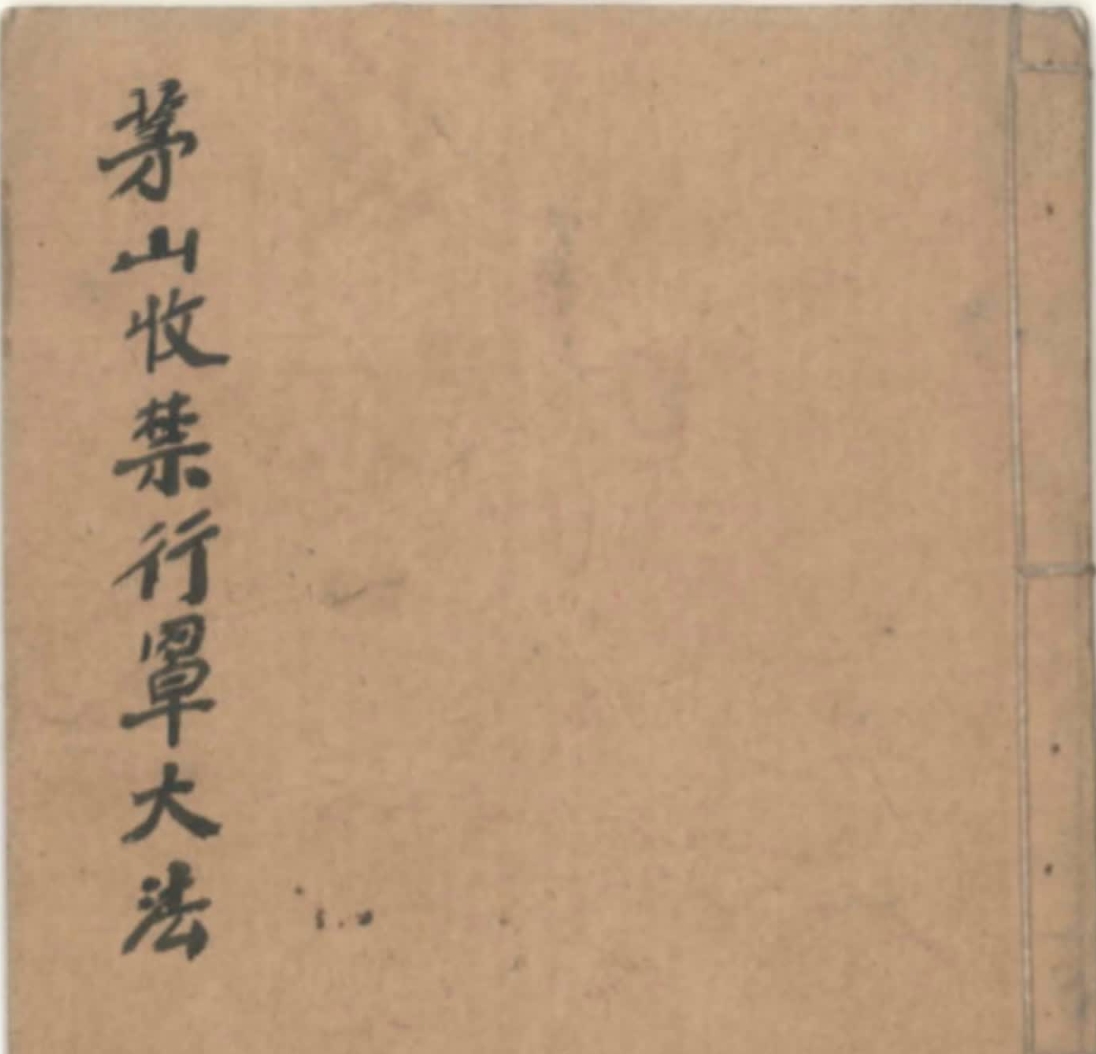 茅山收禁行罩大法